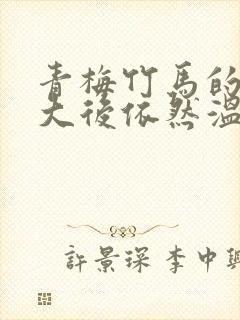 青梅竹馬的
大後依然溫
許景琛 李中興